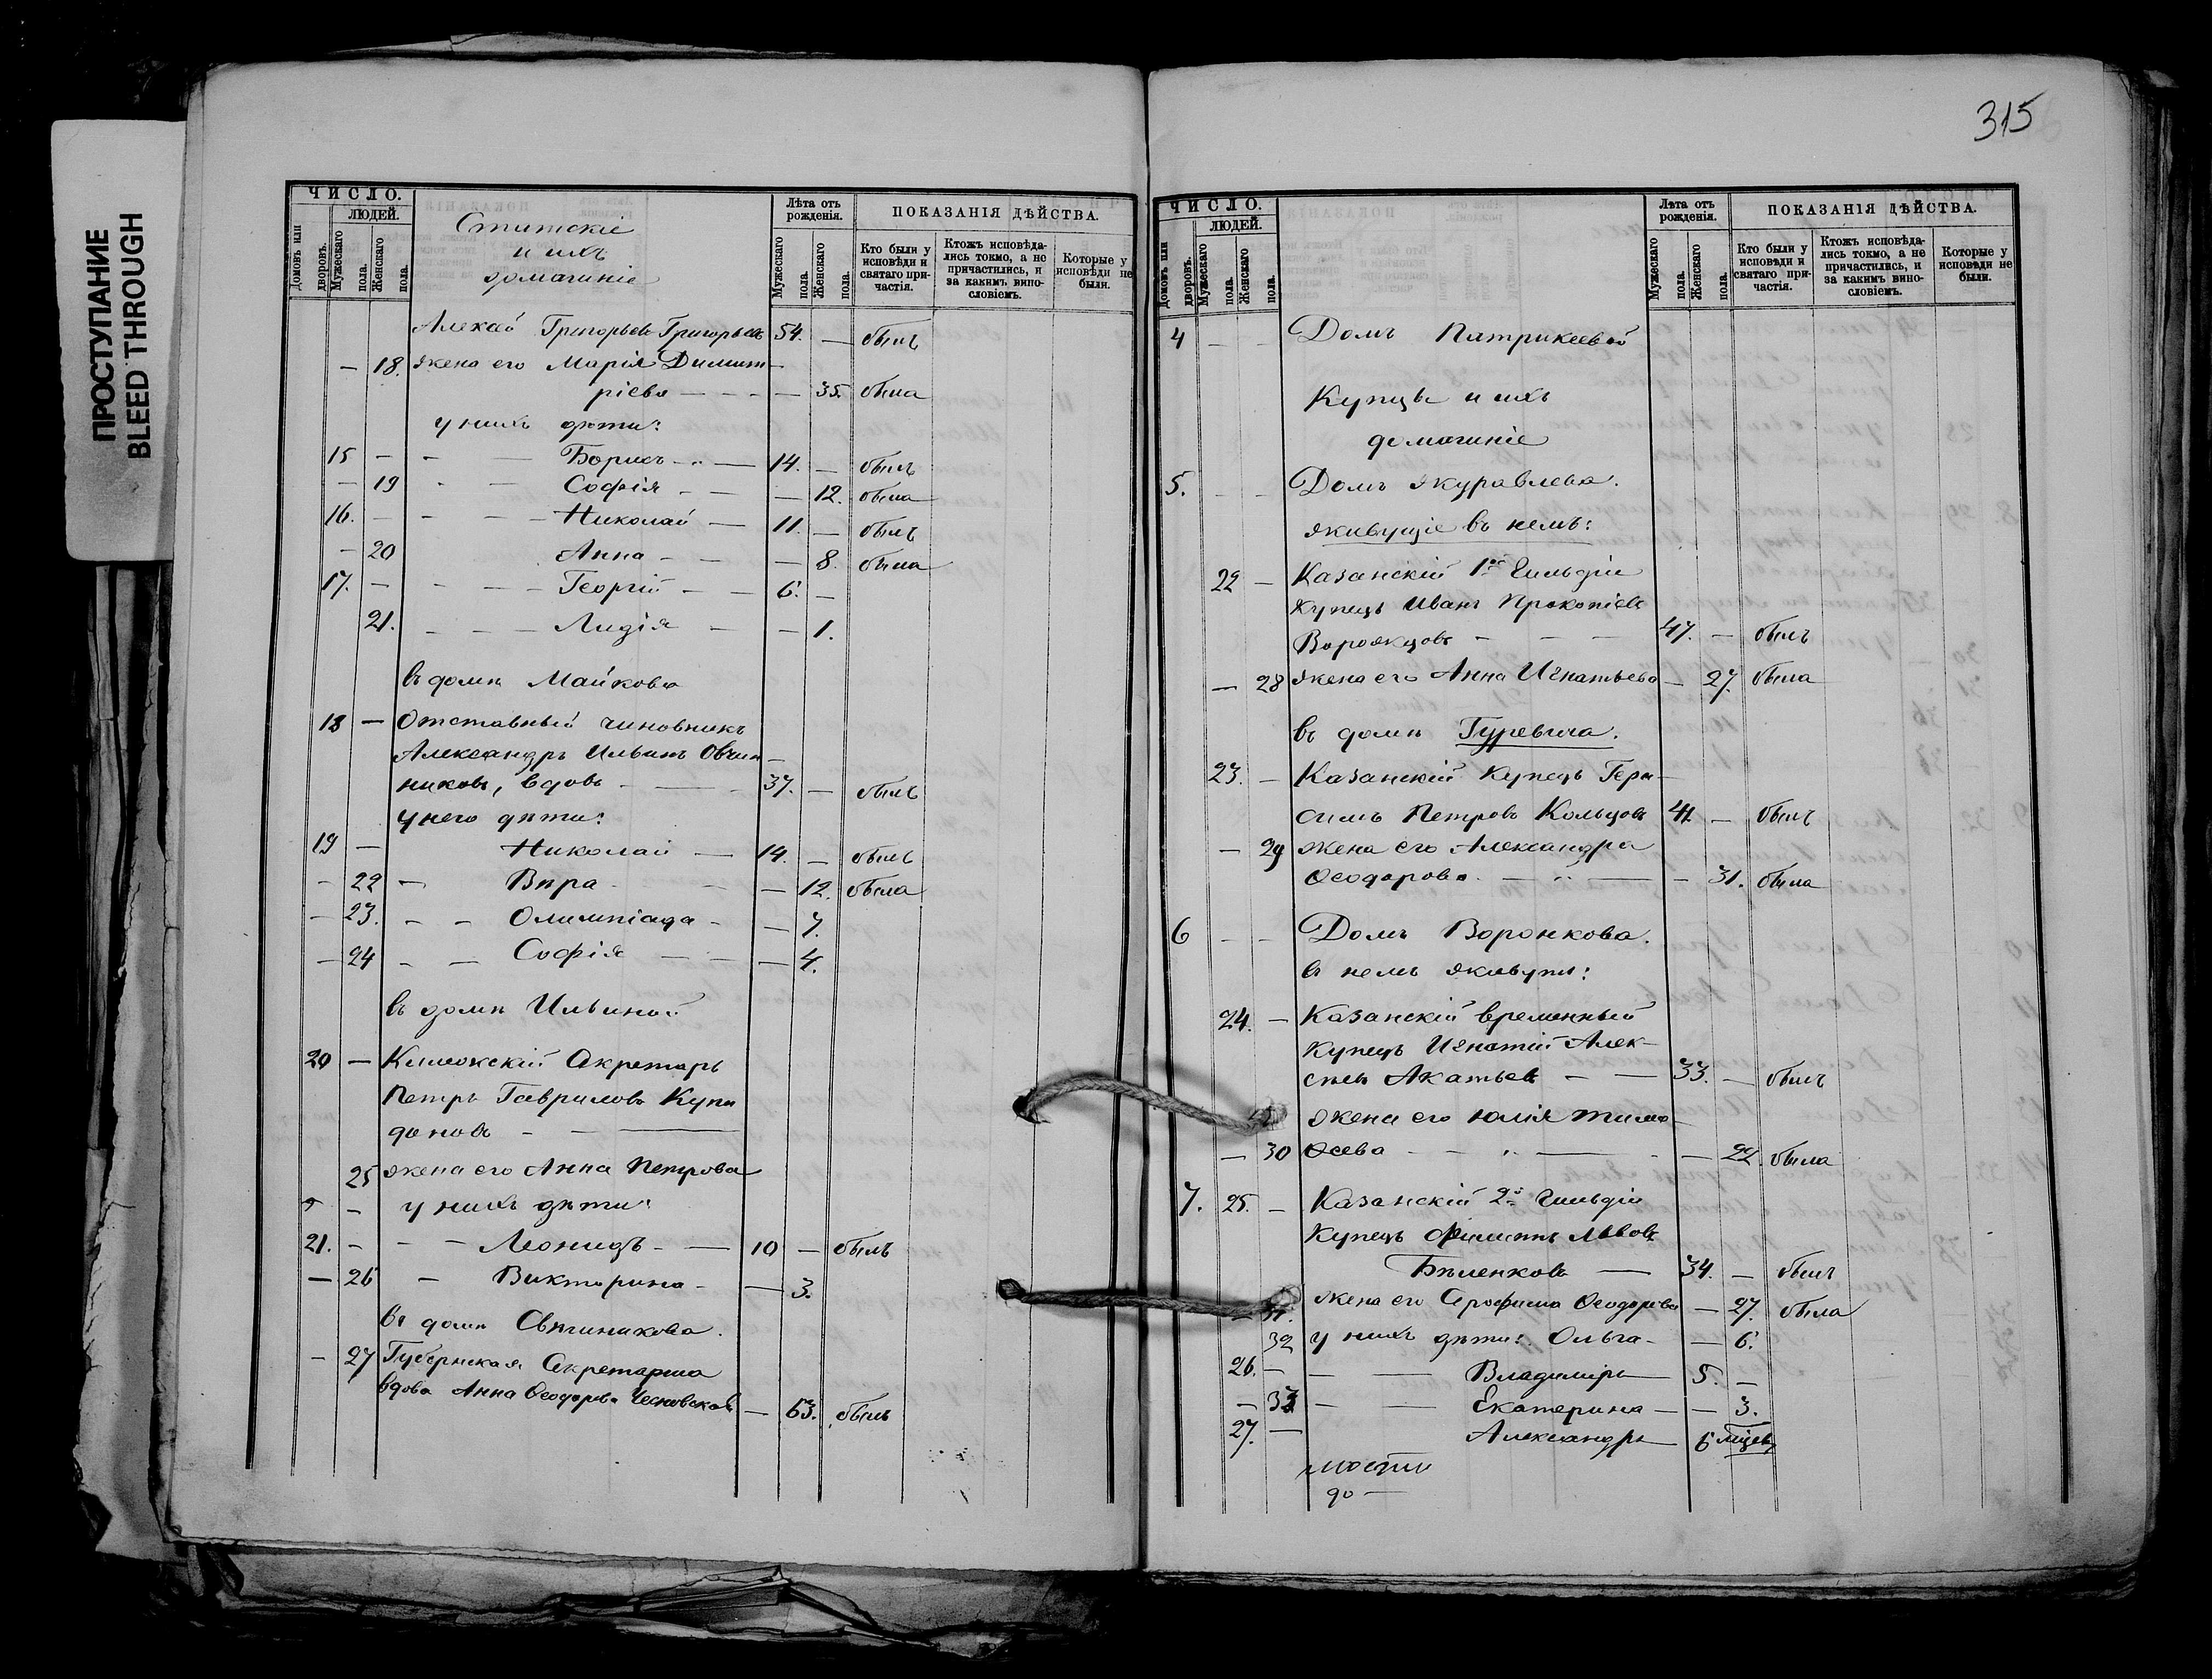 ПРОСТУПАНИЕ
BLEED THROUGH
315
ЧИСЛО.
ЛЮДЕЙ.
Домовъ или дворовъ.
Мужескаго пола.
Женскаго пола.
Статскіе
и ихъ
домашніе
Лѣта отъ рожденія.
Мужескаго пола.
Женскаго пола.
ПОКАЗАНІЯ ДѢЙСТВА.
Кто были у исповѣди и святаго причастія.
Ктожъ исповѣдались токмо, а не причастились, и за какимъ винословіемъ.
Которые у исповѣди не были.
Алексѣй Григорьевъ Григорьевъ 54. — былъ
— 18. жена его Марія Димит-
ріева — — — 35. была
у нихъ дѣти:
15 — — — Борисъ — 14. — былъ
— 19 — — Софія — — — 12. была
16. — — — Николай — 11. — былъ
— 20 Анна — — — 8. была
17. — — — Георгій — — 6. —
21. — — — Лидія — — 1.
въ домѣ Майкова
18 — Отставный чиновникъ
Александръ Ильинъ Овчин-
никовъ, вдовъ — — 37. — былъ
у него дѣти:
19 — Николай — 14. — былъ
— 22 — Вѣра — — — 12. была
— 23. — — Олимпіада — — 7.
— 24 — — Софія — — — 4.
въ домѣ Ильиной
20 — Коллежскій Секретарь
Петръ Гавриловъ Купи
доновъ — — —
25 жена его Анна Петрова
— у нихъ дѣти:
21. — — — Леонидъ — — 10 — былъ
— 26 — Викторина — — 3.
въ домѣ Свѣшникова.
— 27 Губернская Секретарша
вдова Анна Ѳеодорова — 63. былъ
ЧИСЛО.
ЛЮДЕЙ.
Домовъ или дворовъ.
Мужескаго пола.
Женскаго пола.
Лѣта отъ рожденія.
Мужескаго пола.
Женскаго пола.
ПОКАЗАНІЯ ДѢЙСТВА.
Кто были у исповѣди и святаго причастія.
Ктожъ исповѣдались токмо, а не причастились, и за какимъ винословіемъ.
Которые у исповѣди не были.
4 — — Домъ Патрикеевой
Купцы и ихъ
домашніе
5. — — Домъ Журавлева.
живущіе въ немъ:
22 — Казанскій 1ой гильдіи
купецъ Иванъ Прокопіевъ
Ворожцовъ — — — 47. — былъ
— 28 жена его Анна Игнатьева — 27. была
въ домѣ Гуревича.
23. — Казанскій купецъ Гера-
симъ Петровъ Кольцовъ 41 — былъ
— 29 жена его Александра
Ѳеодорова — — — 31. была
6 — — Домъ Воронкова.
въ немъ живутъ:
24. — Казанскій временный
купецъ Игнатій Алек-
сѣевъ Акатьевъ — — 33. — былъ
жена его Юлія Тимо-
— 30 ѳеева — — — 22. была
7. 25. — Казанскій 2й гильдіи
купецъ Филиппъ Львовъ
Бѣленковъ — 34. — былъ
— 31. жена его Серафима Ѳеодорова — 27. была
32 у нихъ дѣти: Ольга — — 6.
26. — — — Владиміръ — 5. —
— 33 — — Екатерина — — 3.
27. — Александръ — 6 мѣсяц.